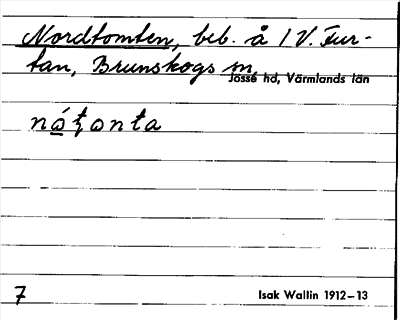 Nordtomten, beb. å 1 V. Fur-
tan, Brunskogs sn,
Jösse hd, Värmlands län
7
Isak Wallin 1912–13